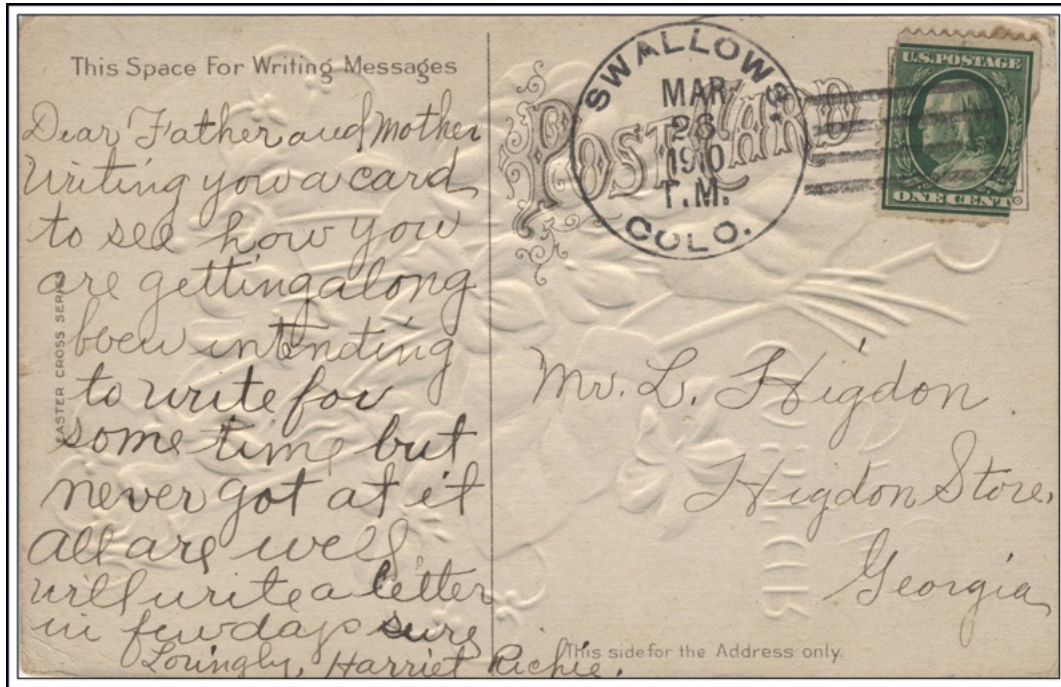 This Space For Writing Messages
Dear Father and Mother
Writing you a card
to see how you
are getting along
been intending
to write for
some time but
never got at it
All are well,
will write a letter
in few days sure
Lovingly, Harriet Richie.
EASTER CROSS SERIES
POST CARD
SWALLOWS,
MAR
26
1910
T.M.
COLO.
U.S. POSTAGE
ONE CENT
Mr. L. Higdon
Higdon Store,
Georgia
This side for the Address only.